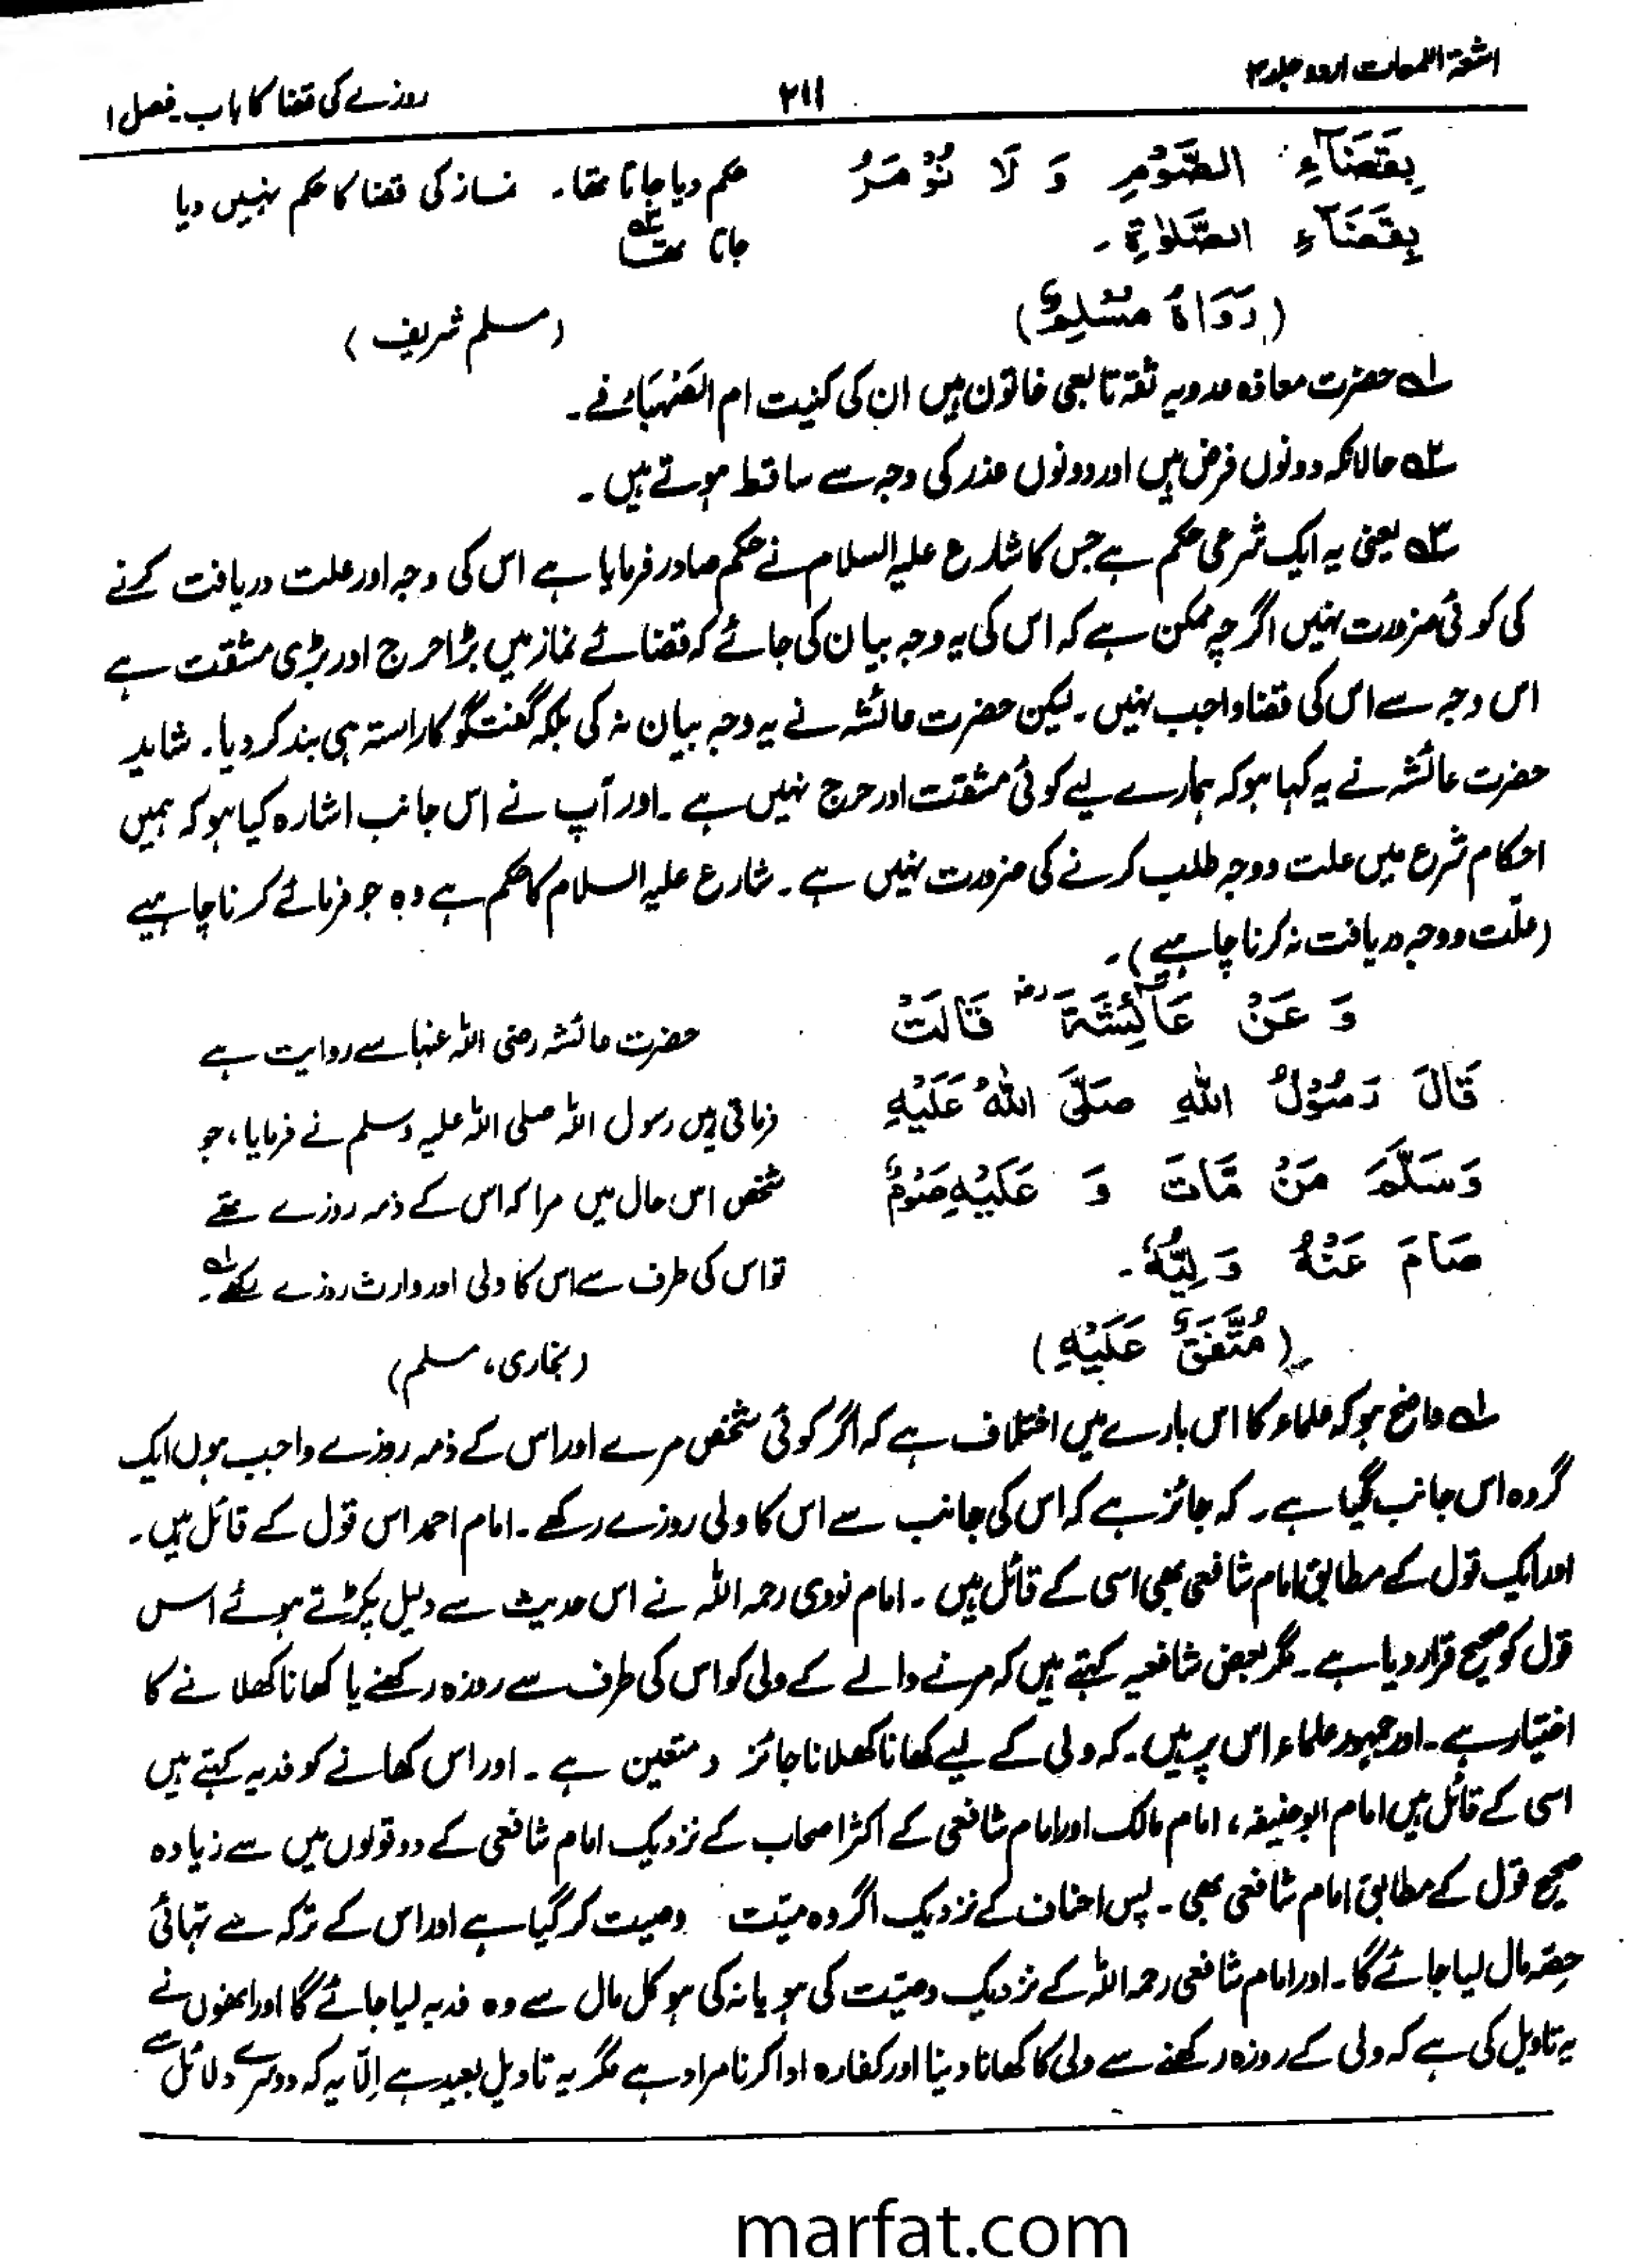 اشعۃ اللمعات اردو جلد ۳
۲۱۱
روزے کی قضا کا باب۔ فصل ۱
بِقَضَآءِ الصَّوْمِ وَ لَا نُؤْمَرُ
بِقَضَآءِ الصَّلٰوةِ۔
(رَوَاهُ مُسْلِمٌ)
حکم دیا جاتا تھا۔ نماز کی قضا کا حکم نہیں دیا
جاتا تھا ۳؎
(مسلم شریف)
۱؎ حضرت معاذہ عدویہ ثقہ تابعی خاتون ہیں ان کی کنیت ام الصَہْبَاء ہے۔
۲؎ حالانکہ دونوں فرض ہیں اور دونوں عذر کی وجہ سے ساقط ہوتے ہیں۔
۳؎ یعنی یہ ایک شرعی حکم ہے جس کا شارع علیہ السلام نے حکم صادر فرمایا ہے اس کی وجہ اور علت دریافت کرنے
کی کوئی ضرورت نہیں اگرچہ ممکن ہے کہ اس کی یہ وجہ بیان کی جائے کہ قضائے نماز میں بڑا حرج اور بڑی مشقت ہے
اس وجہ سے اس کی قضا واجب نہیں۔ لیکن حضرت عائشہ نے یہ وجہ بیان نہ کی بلکہ گفتگو کا راستہ ہی بند کر دیا۔ شاید
حضرت عائشہ نے یہ کہا ہو کہ ہمارے لیے کوئی مشقت اور حرج نہیں ہے۔ اور آپ نے اس جانب اشارہ کیا ہو کہ ہمیں
احکام شرع میں علت و وجہ طلب کرنے کی ضرورت نہیں ہے۔ شارع علیہ السلام کا حکم ہے وہ جو فرمائے کرنا چاہیے
(علّت و وجہ دریافت نہ کرنا چاہیے)۔
وَ عَنْ عَآئِشَةَ رض قَالَتْ
قَالَ رَسُوْلُ اللهِ صَلَّى اللهُ عَلَيْهِ
وَسَلَّمَ مَنْ مَّاتَ وَ عَلَيْهِ صَوْمٌ
صَامَ عَنْهُ وَلِيُّهٗ۔
(مُتَّفَقٌ عَلَيْهِ)
حضرت عائشہ رضی اللہ عنہا سے روایت ہے
فرماتی ہیں رسول اللہ صلی اللہ علیہ وسلم نے فرمایا، جو
شخص اس حال میں مرا کہ اس کے ذمہ روزے تھے
تو اس کی طرف سے اس کا ولی اور وارث روزے رکھے ۱؎۔
(بخاری، مسلم)
۱؎ واضح ہو کہ علماء کا اس بارے میں اختلاف ہے کہ اگر کوئی شخص مرے اور اس کے ذمہ روزے واجب ہوں ایک
گروہ اس جانب گیا ہے۔ کہ جائز ہے کہ اس کی جانب سے اس کا ولی روزے رکھے۔ امام احمد اس قول کے قائل ہیں۔
اور ایک قول کے مطابق امام شافعی بھی اسی کے قائل ہیں۔ امام نووی رحمہ اللہ نے اس حدیث سے دلیل پکڑتے ہوئے اس
قول کو صحیح قرار دیا ہے۔ مگر بعض شافعیہ کہتے ہیں کہ مرنے والے کے ولی کو اس کی طرف سے روزہ رکھنے یا کھانا کھلانے کا
اختیار ہے۔ اور جمہور علماء اس پر ہیں۔ کہ ولی کے لیے کھانا کھلانا جائز و متعین ہے۔ اور اس کھانے کو فدیہ کہتے ہیں
اسی کے قائل ہیں امام ابوحنیفہ، امام مالک اور امام شافعی کے اکثر اصحاب کے نزدیک امام شافعی کے دو قولوں میں سے زیادہ
صحیح قول کے مطابق امام شافعی بھی۔ پس احناف کے نزدیک اگر وہ میّت وصیت کر گیا ہے اور اس کے ترکہ سے تہائی
حصّہ مال لیا جائے گا۔ اور امام شافعی رحمہ اللہ کے نزدیک وصیّت کی ہو یا نہ کی ہو کل مال سے وہ فدیہ لیا جائے گا اور انھوں نے
یہ تاویل کی ہے کہ ولی کے روزہ رکھنے سے ولی کا کھانا دینا اور کفارہ ادا کرنا مراد ہے مگر یہ تاویل بعید ہے اِلّا یہ کہ دوسرے دلائل سے
marfat.com